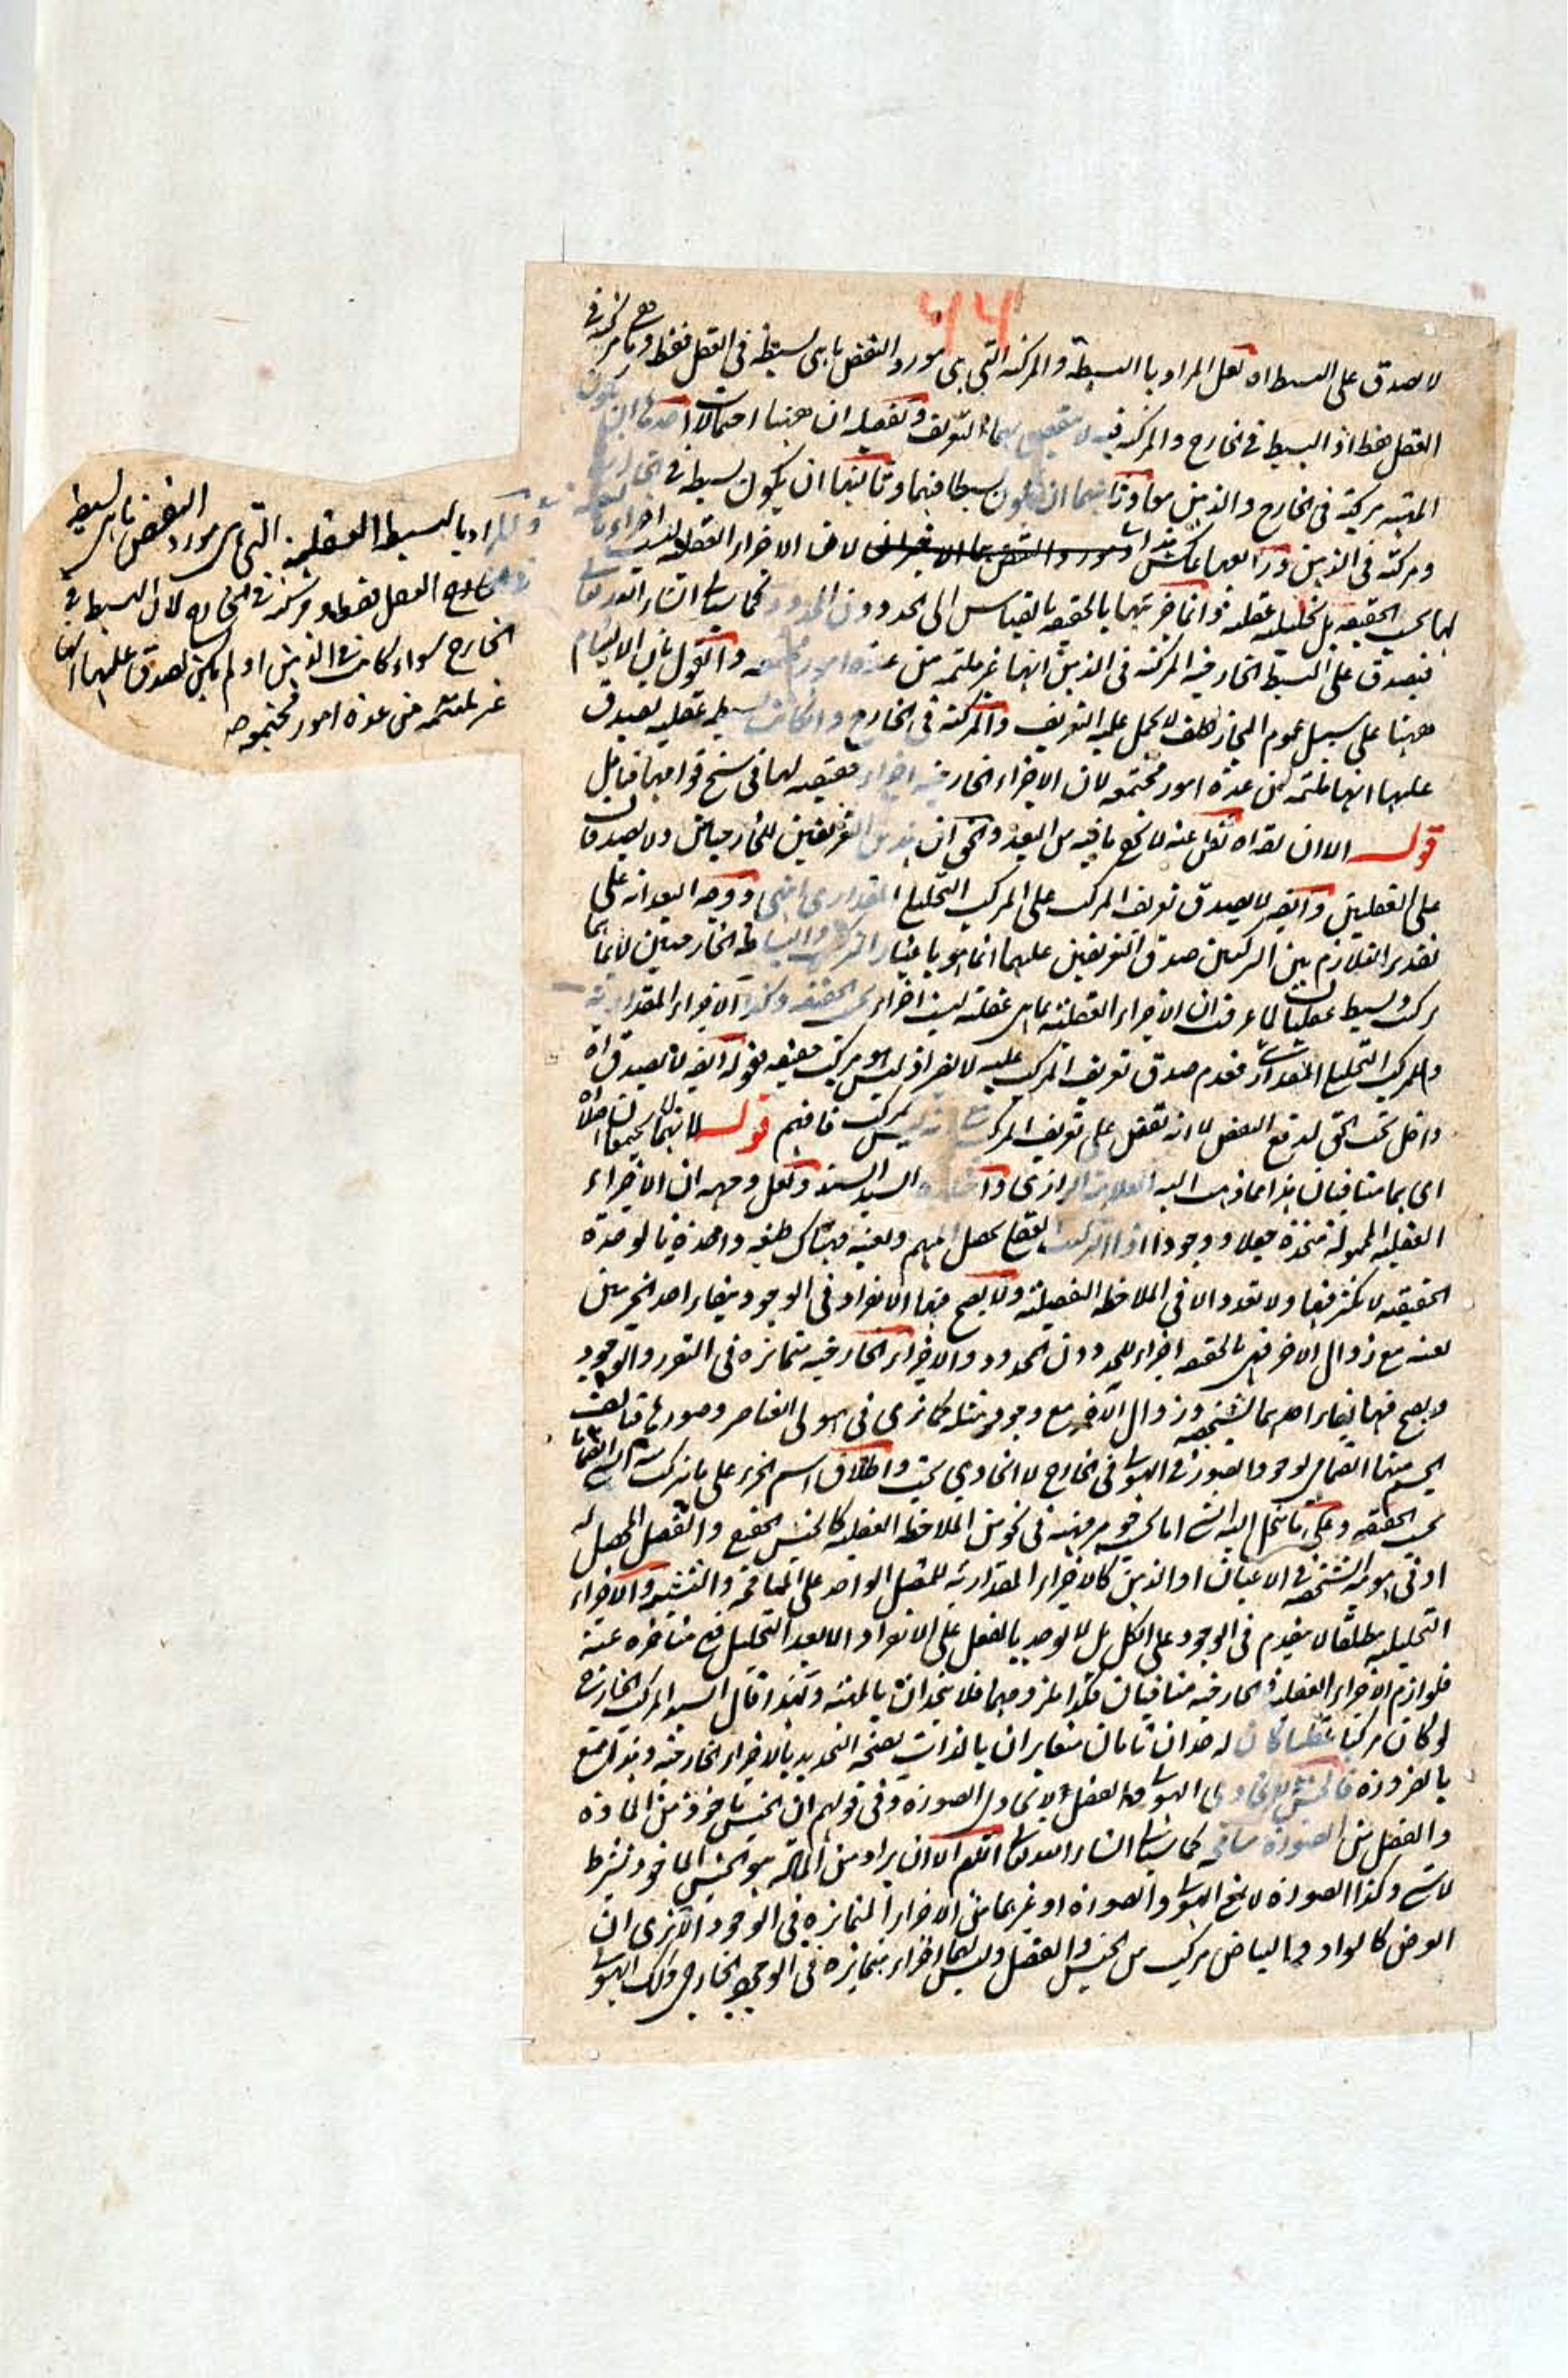 ٤٤
لا يصدق على البسيط اه لعل المراد بالبسيطة والمركبة التي هي مورد النقض ما هى بسيطة في العقل فقط وما هي مركبة في
العقل فقط اذ البسيط في الخارج والمركبة فيه لا بهما التعريف وتفصيله ان ههنا احتمالات احدها ان يكون
المهية مركبة في الخارج والذهن معا وثانيها ان يكون بسيطا فيهما وثالثها ان يكون بسيطة في الخارج
ومركبة في الذهن ورابعها عكس هذا لان الاجزاء العقلية ليست اجزاء
لها بحسب الحقيقة بل تحليلية عقلية وانما جزئيتها بالحقيقة بالقياس الى الحد دون المحدود كما سياتي انشاء الله تعالى
فيصدق على البسيط الخارجية المركبة في الذهن انها غير ملتئمة من عدة امور مجتمعة والقول بان الالتيام
ههنا على سبيل عموم المجاز تكلف لا يحمل عليه التعريف والمركبة في الخارج وان كانت بسيطة عقلية يصدق
عليها انها ملتئمة من عدة امور مجتمعة لان الاجزاء الخارجية اجزاء حقيقية لها في سنخ قوامها فتامل
قوله الا ان يقال اه نقل عنه لا يخفى ما فيه من البعد والحق ان هذين التعريفين للخارجيتين ولا يصدقان
على العقليتين وايضا لا يصدق تعريف المركب على المركب التحليلي المقداري انتهى ووجه البعد انه على
تقدير التلازم بين التركيبين صدق التعريفين عليهما انما هو باعتبار التركيب والبساطة الخارجيتين لا بما هما
مركب وبسيط عقليان لما عرفت ان الاجزاء العقلية بما هي عقلية ليست اجزاء بحسب الحقيقة وكذا الاجزاء المقدارية
والمركب التحليلي المقداري فعدم صدق تعريف المركب عليه لا يضر اذ ليس هو مركب حقيقة فقوله ايضا لا يصدق اه
داخل تحت الحق لدفع النقض لا انه نقض على تعريف المركب بمركب فافهم قوله لانهما لا يجتمعان اصلا اه
اى هما متنافيان هذا ما ذهب اليه العلامة الرازي واختاره السيد السند ولعل وجهه ان الاجزاء
العقلية المحمولة متحدة جعلا ووجودا اذ التركيب العقلي تحصل المبهم وتعينه فهناك طبيعة واحدة بالوحدة
الحقيقية لا تكثر فيها ولا تعدد الا في الملاحظة التفصيلية ولا يصح فيها الانفراد في الوجود ببقاء احد الجزءين
بعينه مع زوال الاخر فهي بالحقيقة اجزاء للحد دون المحدود والاجزاء الخارجية متمايزة في التقرر والوجود
ويصح فيها بقاء احدهما بشخصه وزوال الآخر مع وجود مثله كما ترى في هيولى العناصر وصورها فتالف
الجسم منهما انضمامي لوجود الصورة في الهيولى في الخارج لا اتحادي بحت واطلاق اسم الجزء على ما يتركب منه الشئ
بحسب الحقيقة وعلى ما ينحل اليه الشئ اما بحسب جوهر مهيته في نحو من الملاحظة العقلية كالجنس الحقيقي والفصل المحصل له
او في هويته الشخصية في الاعيان او الذهن كالاجزاء المقدارية للمتصل الواحد على المسامحة والتشبيه والاجزاء
التحليلية مطلقا لا يتقدم في الوجود على الكل بل لا توجد بالفعل على الانفراد الا بعد التحليل فهي متاخرة عنه
فلوازم الاجزاء العقلية والخارجية متنافيان فكذا ملزومهما فلا يتحدان بالمهية ولهذا قال السيد المركب الخارجي
لو كان مركبا عقليا كان له حدان تامان متغايران بالذات لصحة التحديد بالاجزاء الخارجية وهذا ممتنع
بالضرورة فالجنس لا يحاذي الهيولى والفصل لا يحاذي الصورة وفي قولهم ان الجنس ماخوذ من المادة
والفصل من الصورة مسامحة كما سياتي انشاء الله تعالى اللهم الا ان يراد من المادة هو الجنس الماخوذ بشرط
لا شئ وكذا الصورة لا مع الهيولى والصورة او غيرهما من الاجزاء المتمايزة في الوجود الا ترى ان
العرض كالسواد والبياض مركب من الجنس والفصل وليس لها اجزاء متمايزة في الوجود الخارجي وكذلك الهيولى
والمراد بالبسيط العقلية التي هي مورد النقض ما هي بسيطة
العقل فقط ومركبة في الخارج لان البسيط في
الخارج سواء كانت في الذهن او لم يكن يصدق عليها انها
غير ملتئمة من عدة امور مجتمعة صح